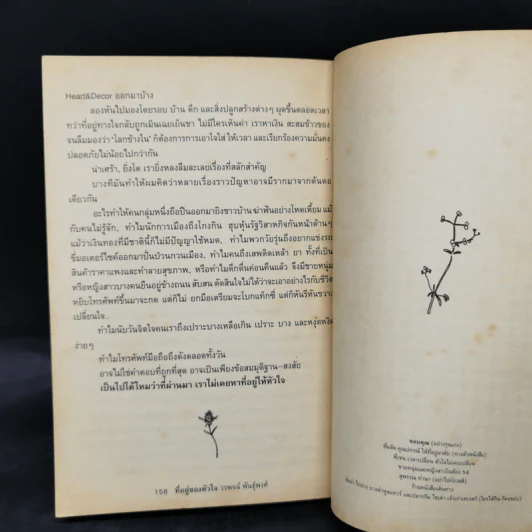 Heart&Decor ออกมาบ้าง
ลองหันไปมองโดยรอบ บ้าน ตึก และสิ่งปลูกสร้างต่างๆ ผุดขึ้นตลอดเวลา
ทว่าที่อยู่ทางใจกลับถูกเมินเฉยเย็นชา ไม่มีใครเห็นค่า เราหาเงิน สะสมข้าวของ
จนลืมมองว่า 'โลกข้างใน' ก็ต้องการการเอาใจใส่ ให้เวลา และเรียกร้องความมั่นคง
ปลอดภัยไม่น้อยไปกว่ากัน
น่าเศร้า, ยิ่งโต เรายิ่งหลงลืมละเลยเรื่องที่สลักสำคัญ
บางทีมันทำให้ผมคิดว่าหลายเรื่องราวปัญหาอาจมีรากมาจากต้นตอ
เดียวกัน
อะไรทำให้คนกลุ่มหนึ่งถือปืนออกมายิงชาวบ้าน ฆ่าฟันอย่างโหดเหี้ยม แม้
กับคนไม่รู้จัก, ทำไมนักการเมืองถึงโกงกิน ฮุบหุ้นรัฐวิสาหกิจกันหน้าด้านๆ
แม้ว่าเงินทองที่มีชาตินี้ก็ไม่มีปัญญาใช้หมด, ทำไมพวกวัยรุ่นถึงอยากแข่งรถ
ซิ่งมอเตอร์ไซค์ออกมาปั่นป่วนกวนเมือง, ทำไมคนถึงเสพติดเหล้า ยา ทั้งที่เป็น
สินค้าราคาแพงและทำลายสุขภาพ, หรือทำไมดึกดื่นค่อนคืนแล้ว จึงมีชายหนุ่ม
หรือหญิงสาวบางคนยืนอยู่ข้างถนน สับสน ตัดสินใจไม่ได้ว่าจะเอาอย่างไรกับชีวิต
หยิบโทรศัพท์ขึ้นมาจะกด แต่ก็ไม่ ยกมือเตรียมจะโบกแท็กซี่ แต่ก็หันรีหันขวาง
เปลี่ยนใจ..
ทำไมนับวันจิตใจคนเราถึงเปราะบางเหลือเกิน เปราะ บาง และหงุดหงิด
ง่ายๆ
ทำไมโทรศัพท์มือถือถึงดังตลอดทั้งวัน
อาจไม่ใช่คำตอบที่ถูกที่สุด อาจเป็นเพียงข้อสมมุติฐาน-สงสัย
เป็นไปได้ไหมว่าที่ผ่านมา เราไม่เคยหาที่อยู่ให้หัวใจ
158 ที่อยู่ของหัวใจ วรพจน์ พันธุ์พงศ์
ขอบคุณ (อย่างรุนแรง)